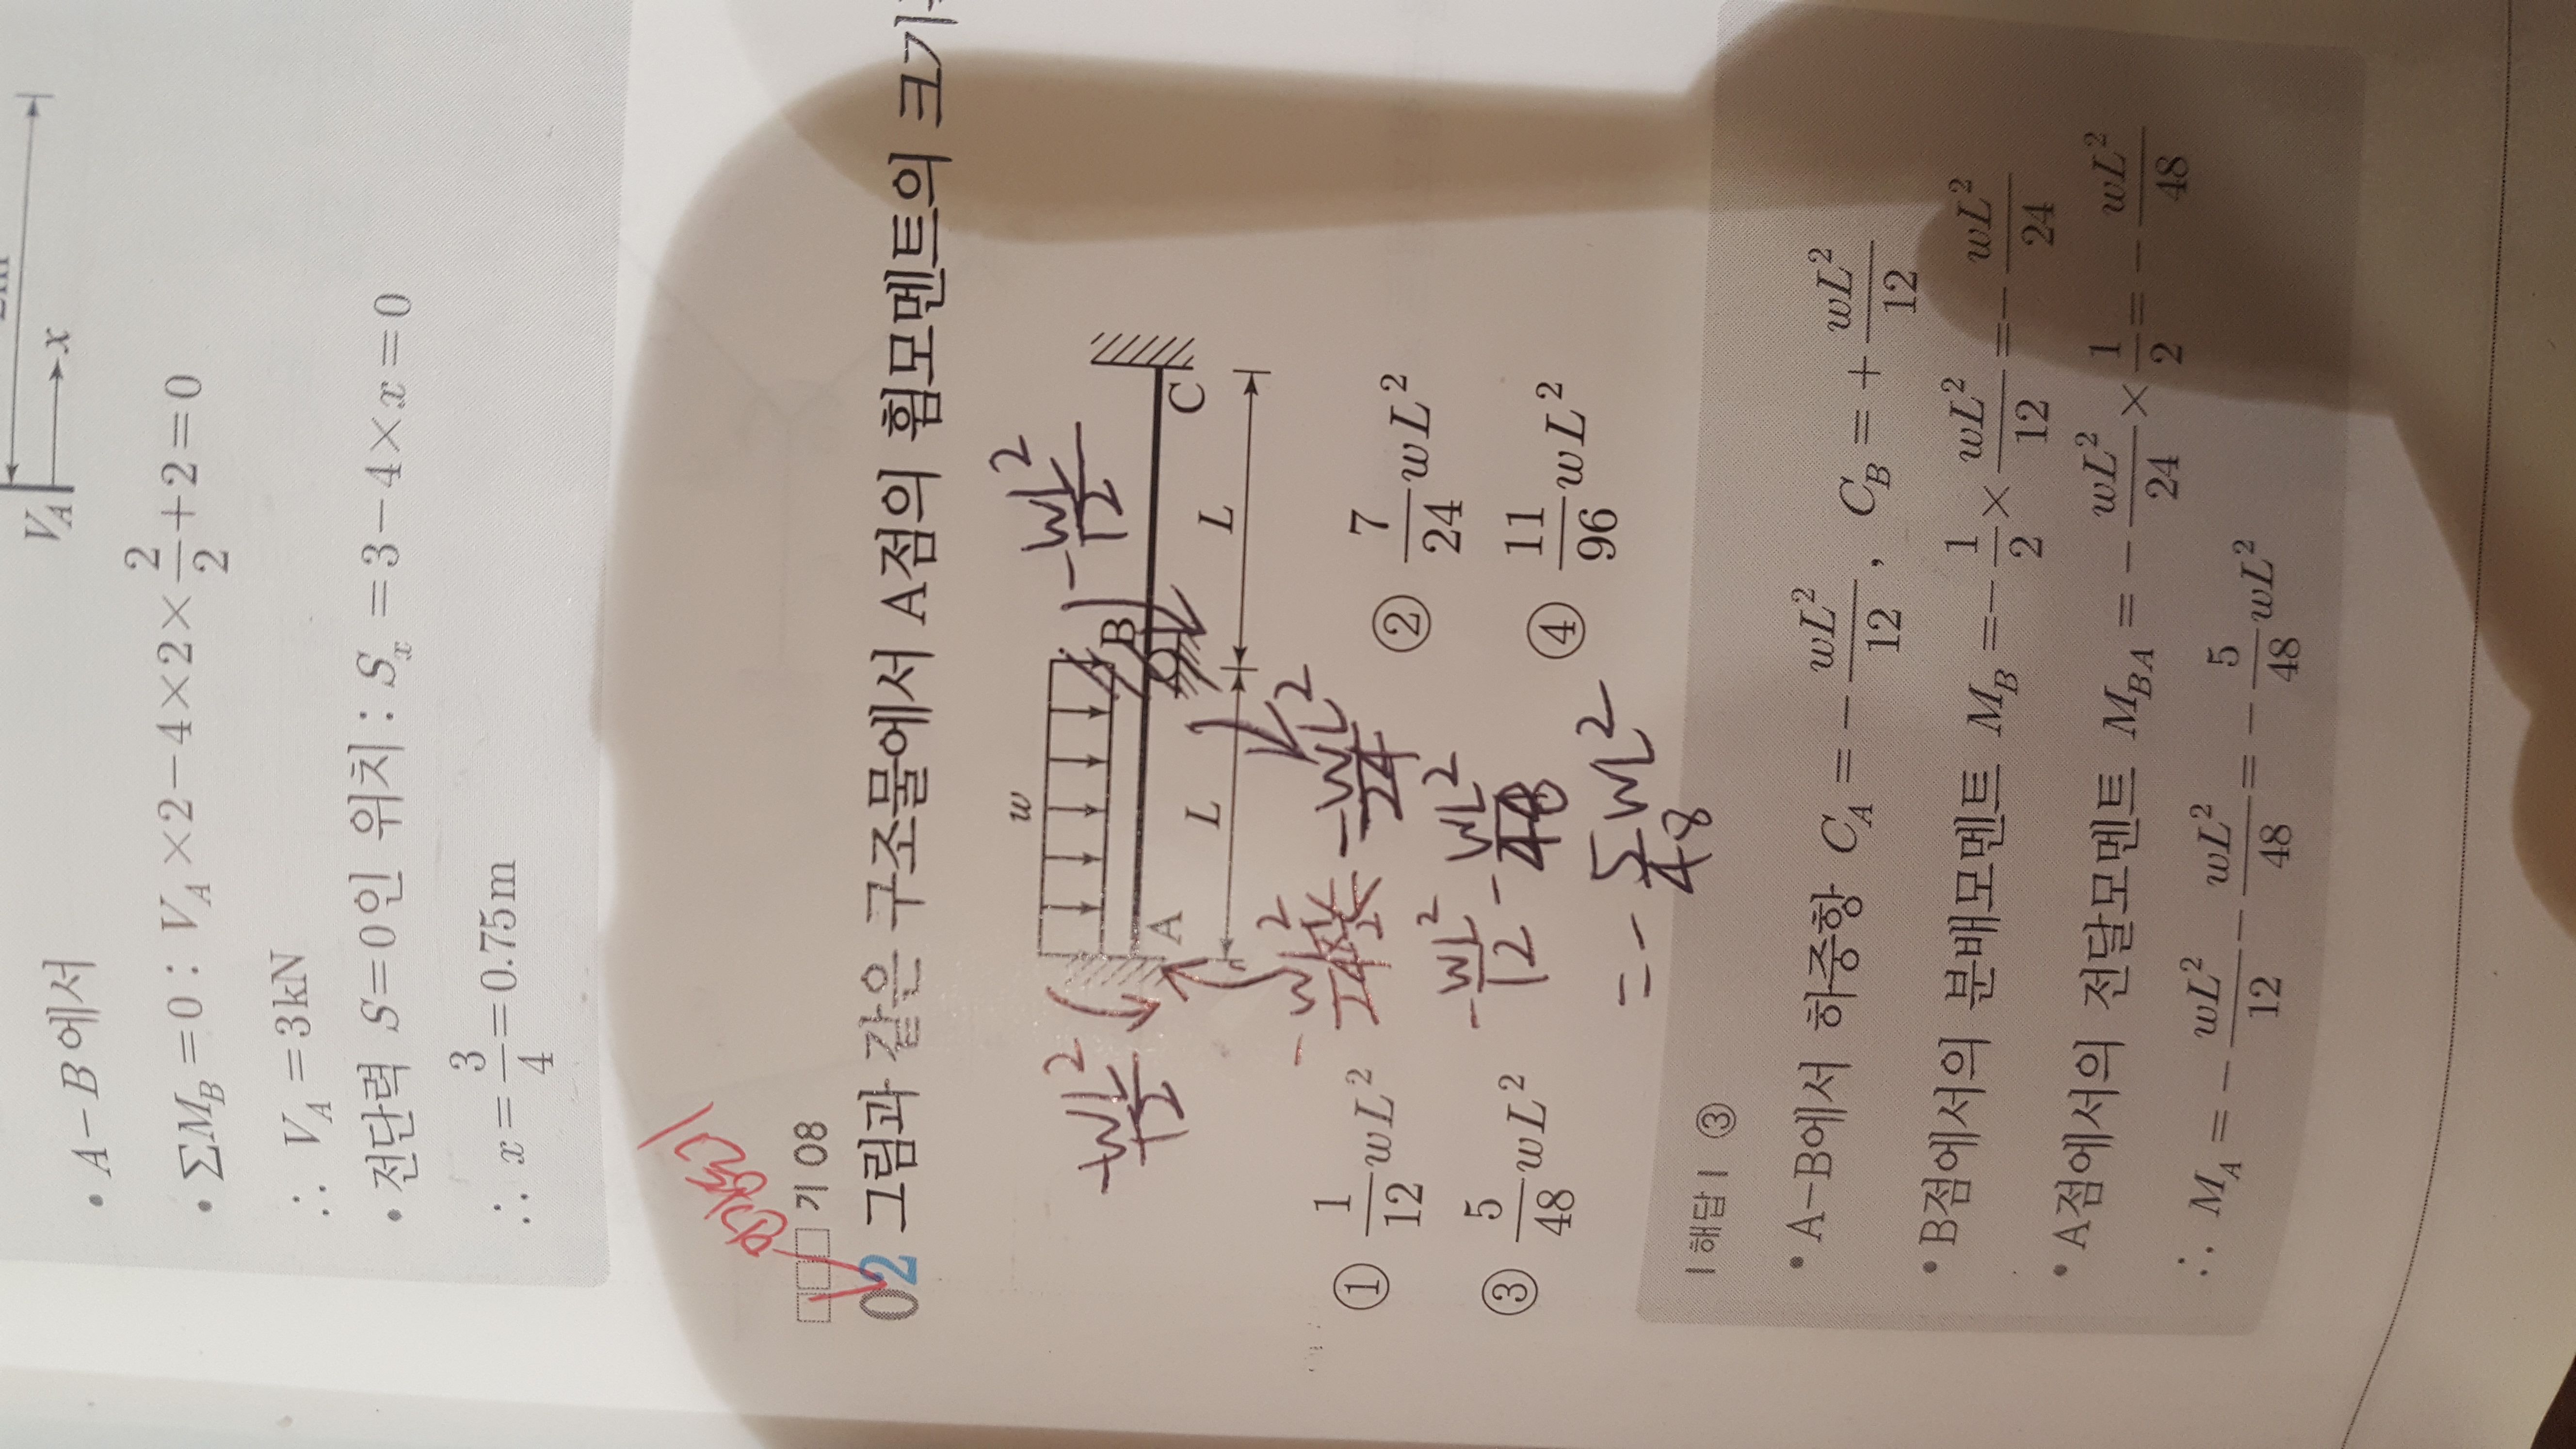 V_A
x
• A-B에서
• ΣM_B=0 : V_A×2-4×2×2/2+2=0
∴ V_A=3kN
• 전단력 S=0인 위치 : S_x=3-4×x=0
∴ x=3/4=0.75m
기 08
02 그림과 같은 구조물에서 A점의 휨모멘트의 크기
w
A B C
L L
-wL²/12
-wL²/12
-wL²/24
-wL²/12 - wL²/48
= -5/48 wL²
① 1/12 wL² ② 7/24 wL²
③ 5/48 wL² ④ 11/96 wL²
| 해답 | ③
• A-B에서 하중항 C_A=-wL²/12, C_B=+wL²/12
• B점에서의 분배모멘트 M_B=-1/2×wL²/12=-wL²/24
• A점에서의 전달모멘트 M_BA=-wL²/24×1/2=-wL²/48
∴ M_A=-wL²/12-wL²/48=-5/48 wL²